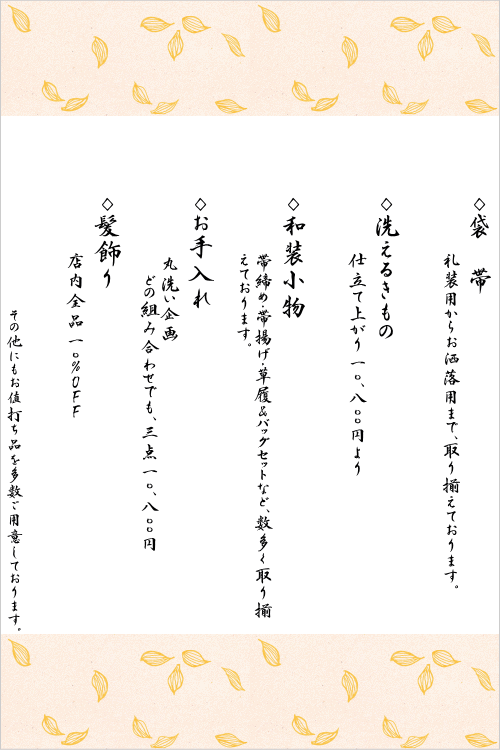 ◇袋帯
礼装用からお洒落用まで、取り揃えております。
◇洗えるきもの
仕立て上がり一〇、八〇〇円より
◇和装小物
帯締め・帯揚げ・草履&バッグセットなど、数多く取り揃
えております。
◇お手入れ
丸洗い企画
どの組み合わせでも、三点一〇、八〇〇円
◇髪飾り
店内全品一〇%OFF
その他にもお値打ち品を多数ご用意しております。